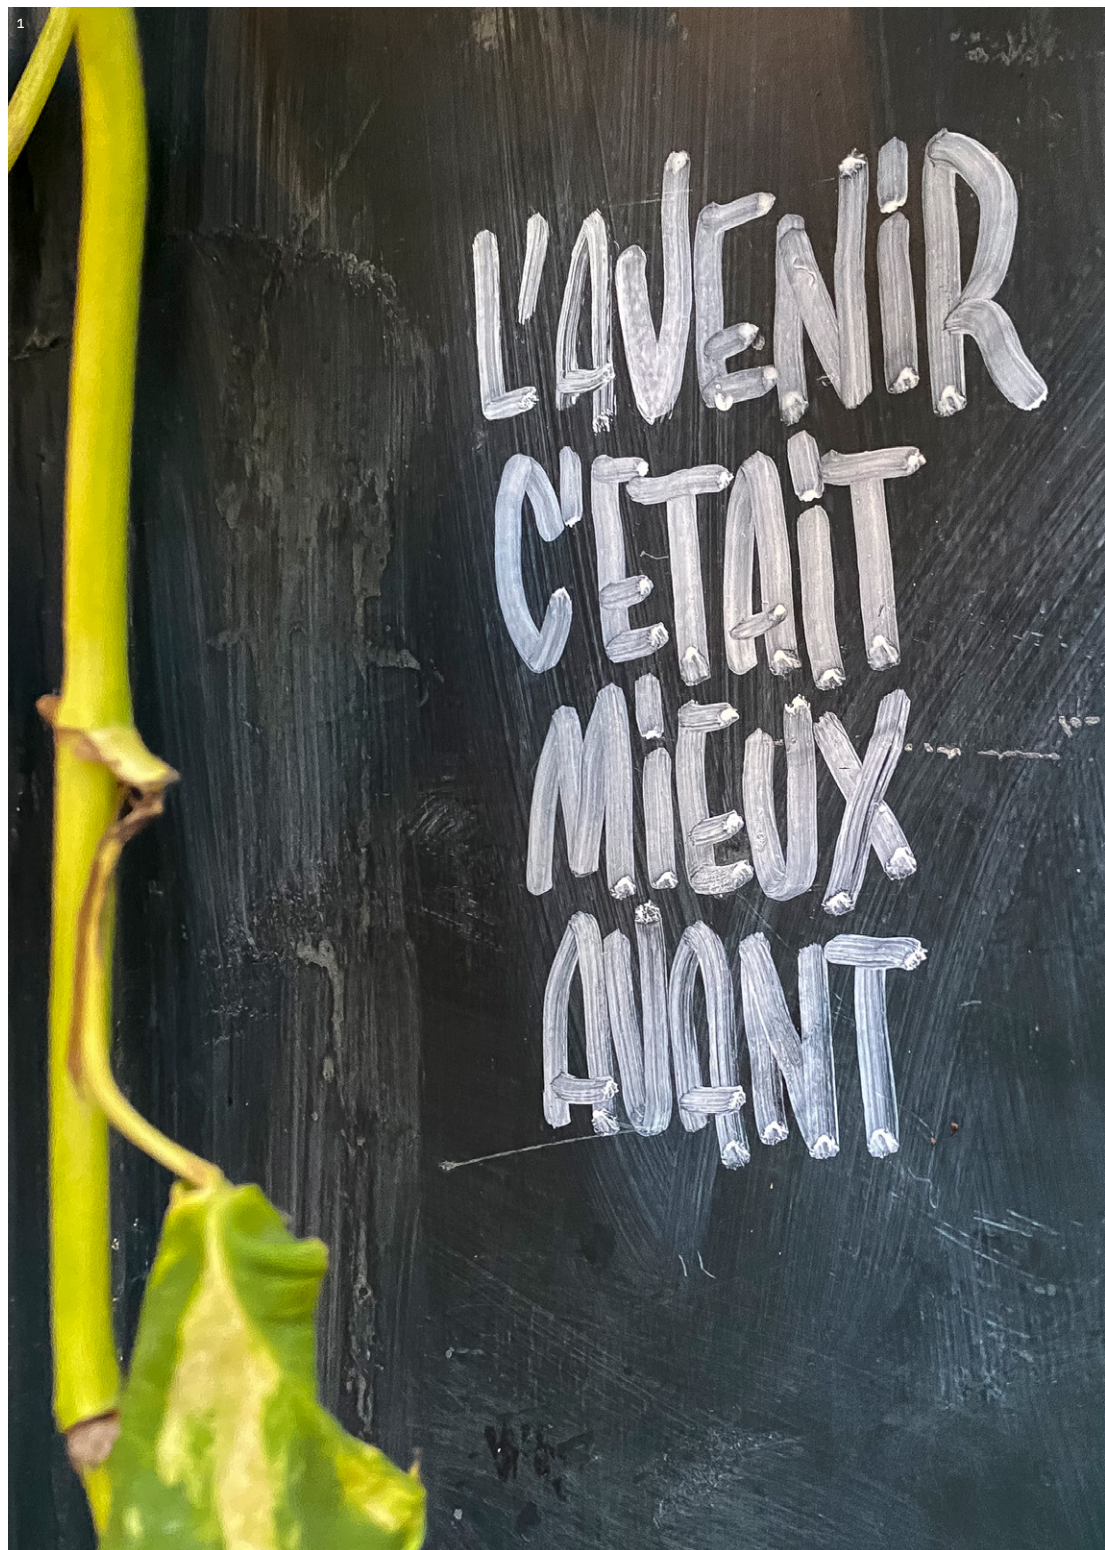 1
L'AVENiR
C'ETAiT
MiEUX
AVANT